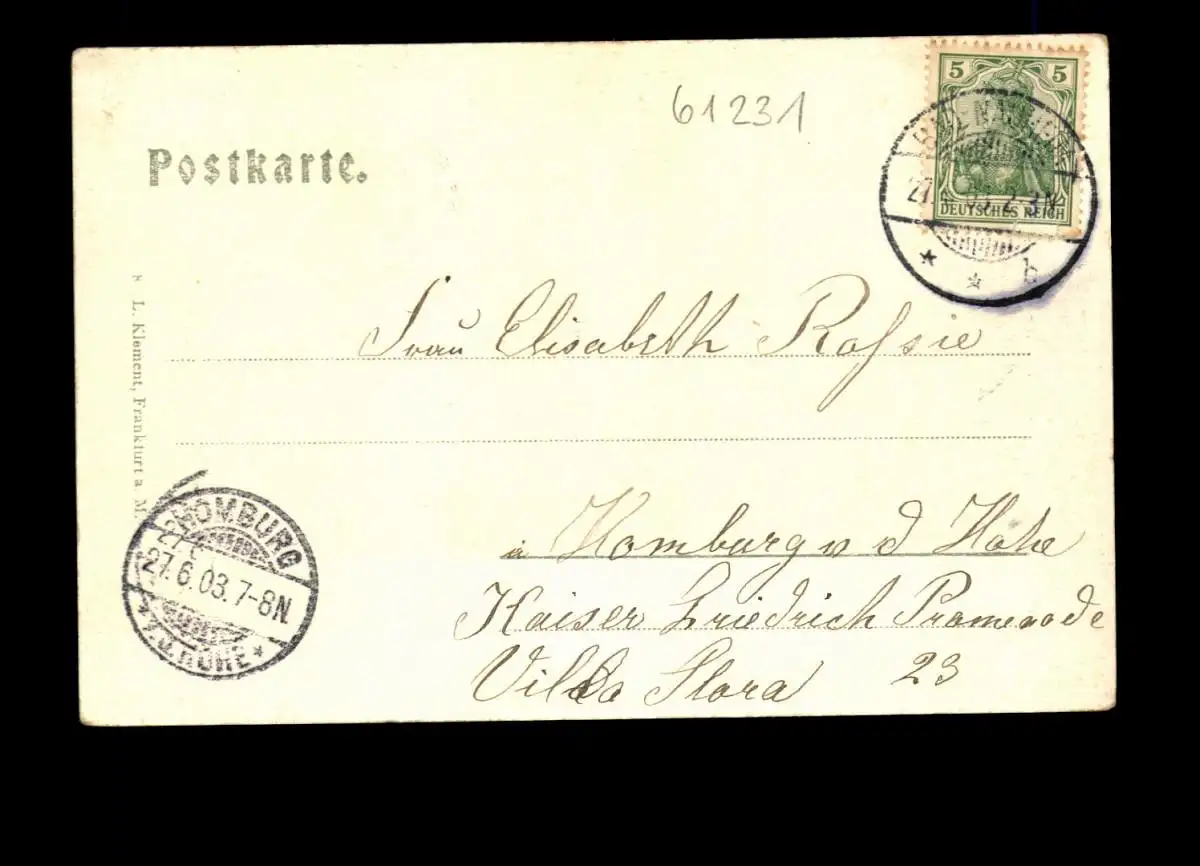 61231
5 5
DEUTSCHES REICH
2-3N
b
Postkarte.
L. Klement, Frankfurt a. M.
Frau Elisabeth
in Homburg v d Höhe
Kaiser Friedrich Promenade
Villa Flora 23
HOMBURG
27.6.03.7-8N.
v.d. HÖHE